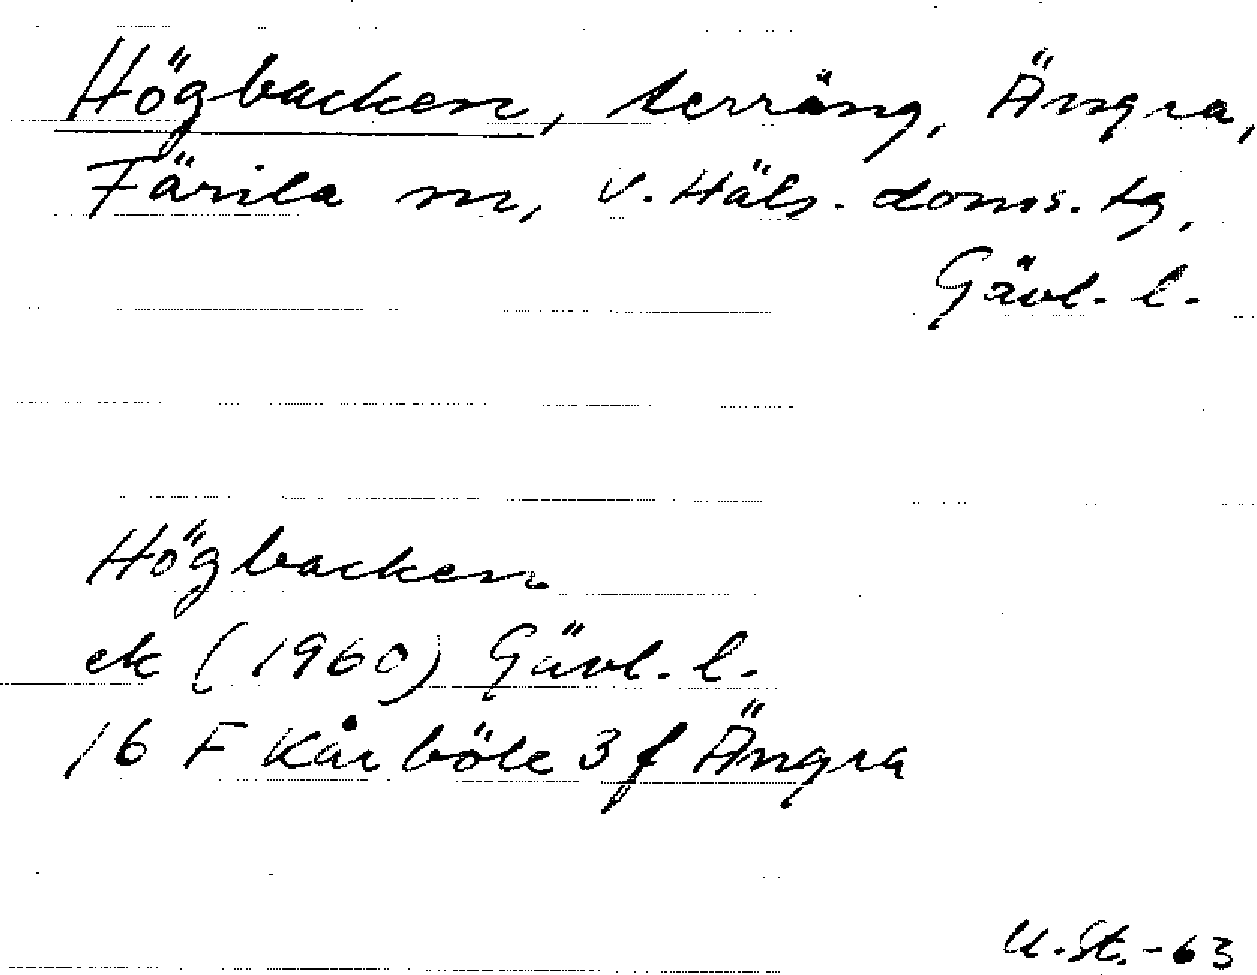 Högbacken, terräng, Ängra,
Färila sn, V. Häls. doms. tg,
Gävl. l.
Högbacken
ek (1960) Gävl. l.
16 F Kårböle 3 f Ängra
U. St. - 63